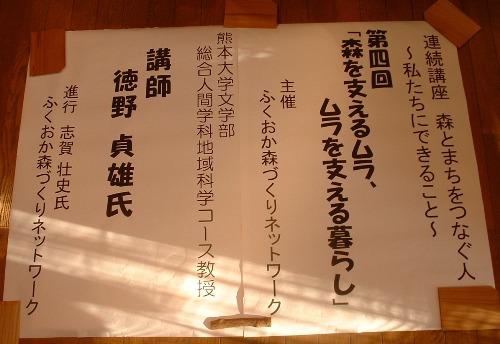 連続講座 森とまちをつなぐ人
～私たちにできること～
第四回
「森を支えるムラ、
ムラを支える暮らし」
主催
ふくおか森づくりネットワーク
熊本大学文学部
総合人間学科地域科学コース教授
講師
徳野 貞雄氏
進行 志賀 壮史氏
ふくおか森づくりネットワーク